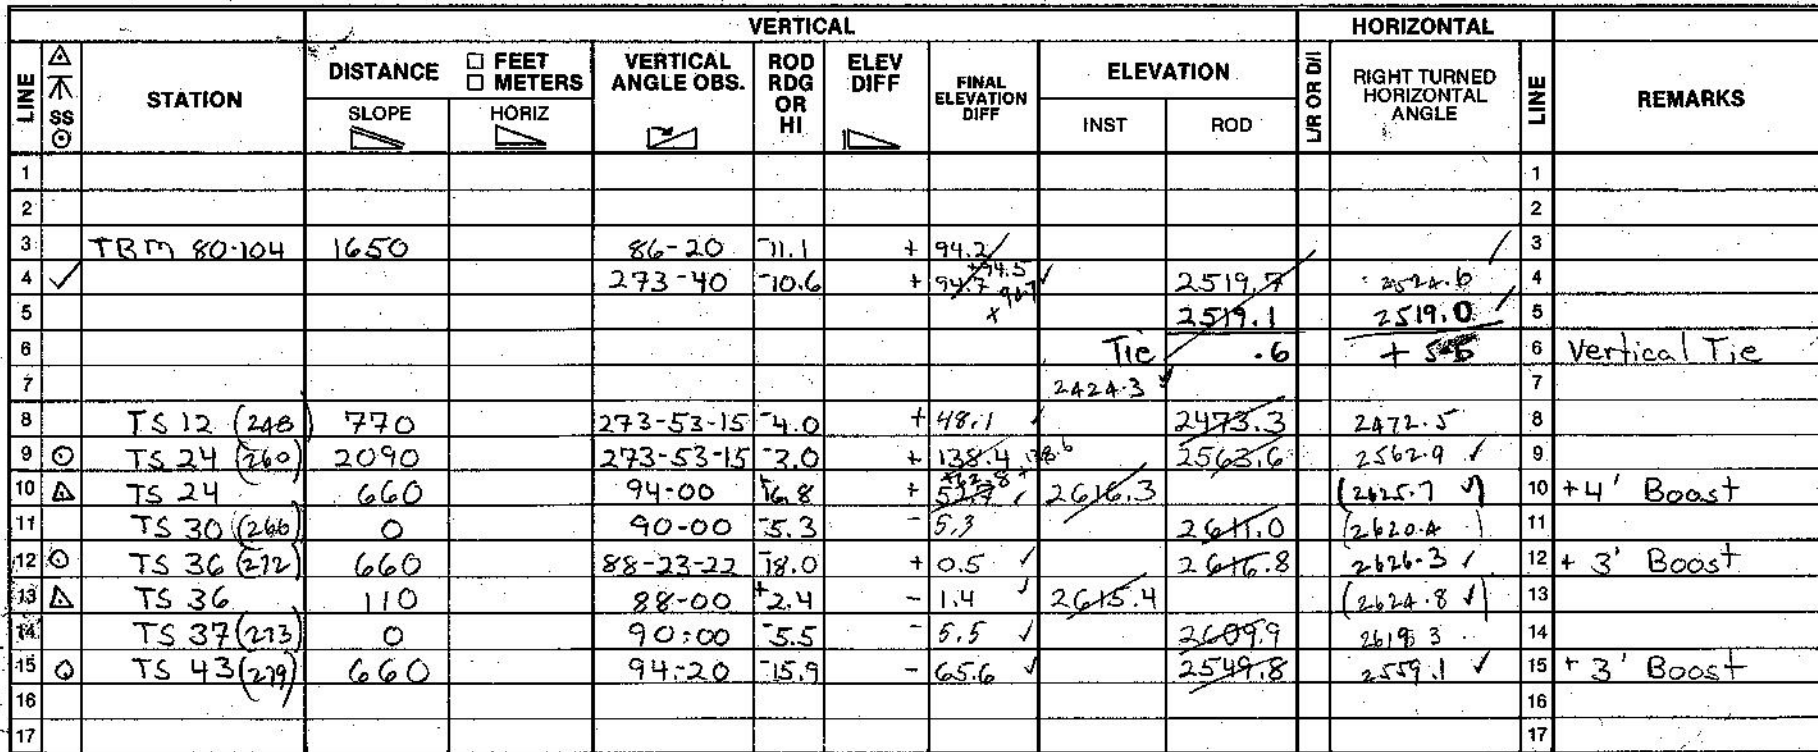 VERTICAL HORIZONTAL
LINE SS STATION DISTANCE FEET METERS SLOPE HORIZ VERTICAL ANGLE OBS. ROD RDG OR HI ELEV DIFF FINAL ELEVATION DIFF ELEVATION INST ROD L/R OR D/I RIGHT TURNED HORIZONTAL ANGLE LINE REMARKS
1 1
2 2
3 TBM 80-104 1650 86-20 -11.1 + 94.2 3
4 ✓ 273-40 -10.6 + 94.7 +94.5 2519.7 2524.6 4
5 2519.1 2519.0 5
6 Tie .6 + 6 Vertical Tie
7 2424.3 7
8 TS 12 (248) 770 273-53-15 -4.0 + 48.1 2473.3 2472.5 8
9 TS 24 (260) 2090 273-53-15 -3.0 + 138.4 138.6 2563.6 2562.9 ✓ 9
10 TS 24 660 94-00 +6.8 + 52.7 +62.8 2616.3 (2625.7 ✓) 10 +4' Boost
11 TS 30 (266) 0 90-00 -5.3 - 5.3 2611.0 (2620.4) 11
12 TS 36 (272) 660 88-23-22 -18.0 + 0.5 ✓ 2616.8 2626.3 ✓ 12 + 3' Boost
13 TS 36 110 88-00 +2.4 - 1.4 ✓ 2615.4 (2624.8 ✓) 13
14 TS 37 (273) 0 90-00 -5.5 - 5.5 ✓ 2609.9 2619.3 14
15 TS 43 (279) 660 94-20 -15.9 - 65.6 ✓ 2549.8 2559.1 ✓ 15 + 3' Boost
16 16
17 17